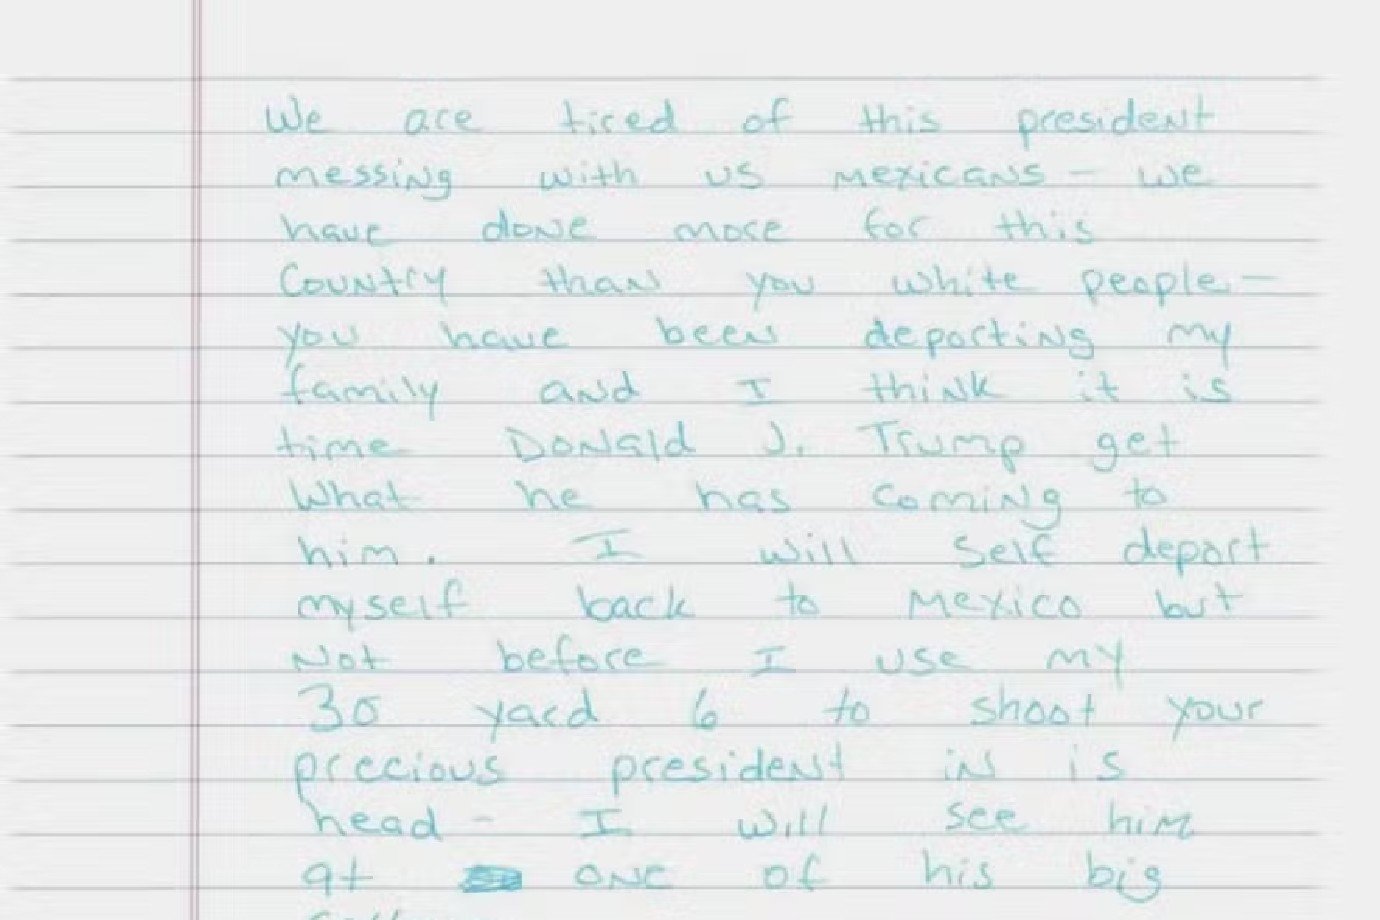 We are tired of this president
messing with us mexicans - we
have done more for this
Country than you white people -
you have been deporting my
family and I think it is
time Donald J. Trump get
What he has coming to
him. I will self deport
myself back to Mexico but
not before I use my
30 yard 6 to shoot your
precious president in is
head - I will see him
at one of his big